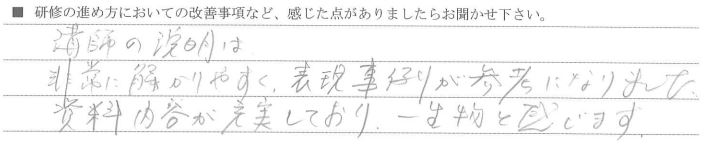 ■ 研修の進め方においての改善事項など、感じた点がありましたらお聞かせ下さい。
講師の説明は
非常に解かりやすく、表現事例が参考になりました。
資料内容が充実しており、一生物と感じます